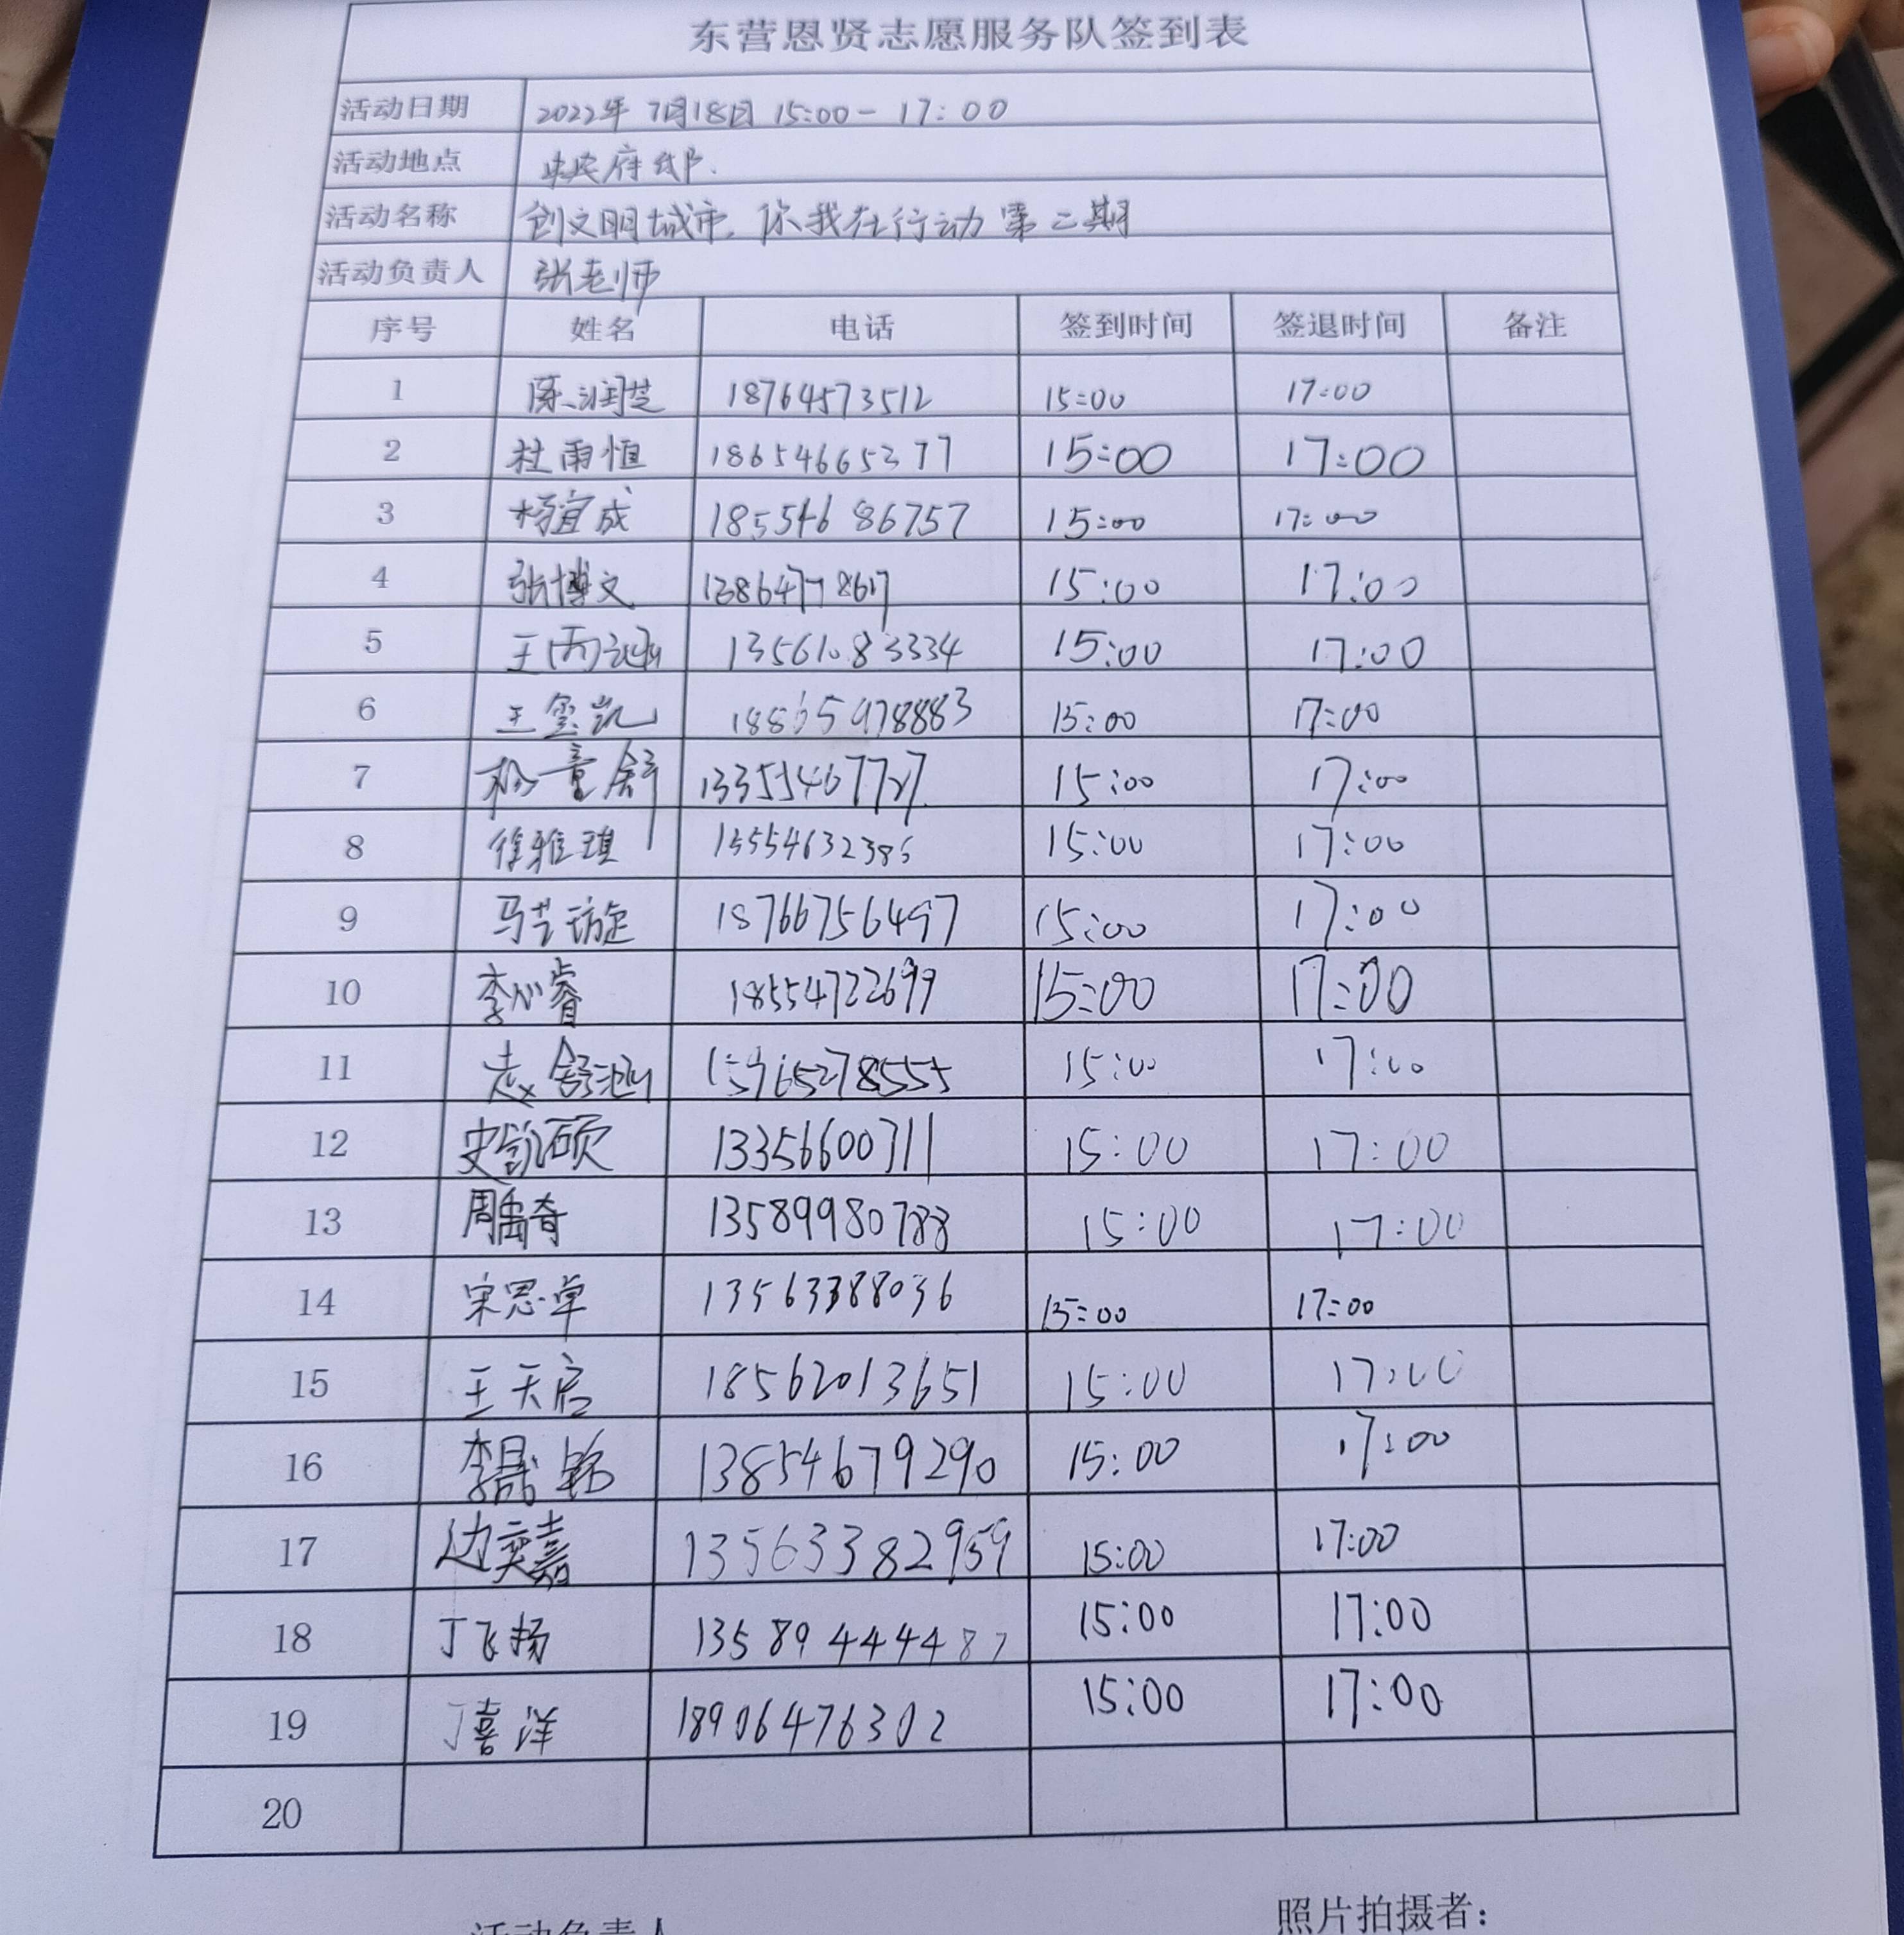 东营恩贤志愿服务队签到表
活动日期 2022年 7月18日 15:00 - 17:00
活动地点 中央府邸.
活动名称 创文明城市,你我在行动 第二期
活动负责人 张老师
序号 姓名 电话 签到时间 签退时间 备注
1 陈润芝 18764573512 15:00 17:00
2 杜雨恒 18654665377 15:00 17:00
3 杨宜成 18554686757 15:00 17:00
4 张博文 15:00 17:00
5 王丙涵 13561083334 15:00 17:00
6 王玺凯 18865978883 15:00 17:00
7 杨童舒 13355467727 15:00 17:00
8 徐雅琪 15:00 17:00
9 马艺璇 18766756497 15:00 17:00
10 李心睿 18554722699 15:00 17:00
11 赵舒涵 15965278555 15:00 17:00
12 史凯硕 13356600711 15:00 17:00
13 周禹奇 13589980788 15:00 17:00
14 宋思卓 13563388036 15:00 17:00
15 王天启 18562013651 15:00 17:00
16 李晟铭 13854679290 15:00 17:00
17 边奕嘉 13563382959 15:00 17:00
18 丁飞扬 13589444487 15:00 17:00
19 丁喜洋 18906476302 15:00 17:00
20
活动负责人 照片拍摄者: